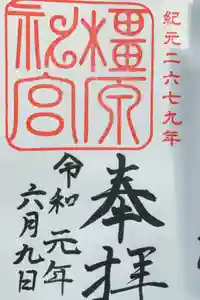 紀元二六七九年
橿原神宮
奉拝
令和元年
六月九日